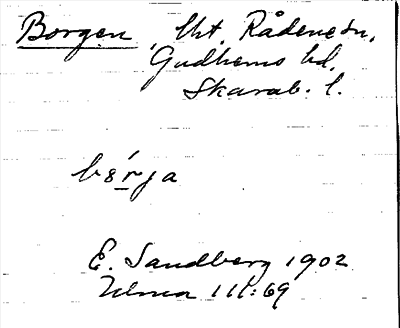 Borgen, lht, Rådene sn,
Gudhems hd,
Skarab. l.
bórja
E. Sandberg 1902
Ulma 111:69